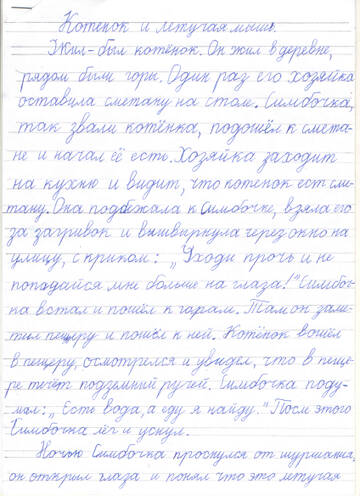 Котёнок и летучая мышь.
Жил-был котёнок. Он жил в деревне,
рядом были горы. Один раз его хозяйка
оставила сметану на столе. Симбочка,
так звали котёнка, подошёл к смета-
не и начал её есть. Хозяйка заходит
на кухню и видит, что котёнок ест сме-
тану. Она подбежала к Симбочке, взяла его
за загривок и вышвирнула через окно на
улицу, с криком: „Уходи прочь и не
попадайся мне больше на глаза!" Симбоч-
ка встал и пошёл к горам. Там он заме-
тил пещеру и пошёл к ней. Котёнок вошёл
в пещеру, осмотрелся и увидел, что в пеще-
ре течёт подземный ручей. Симбочка поду-
мал: „Есть вода, а еду я найду." После этого
Симбочка лёг и уснул.
Ночью Симбочка проснулся от шуршания,
он открыл глаза и понял что это летучая